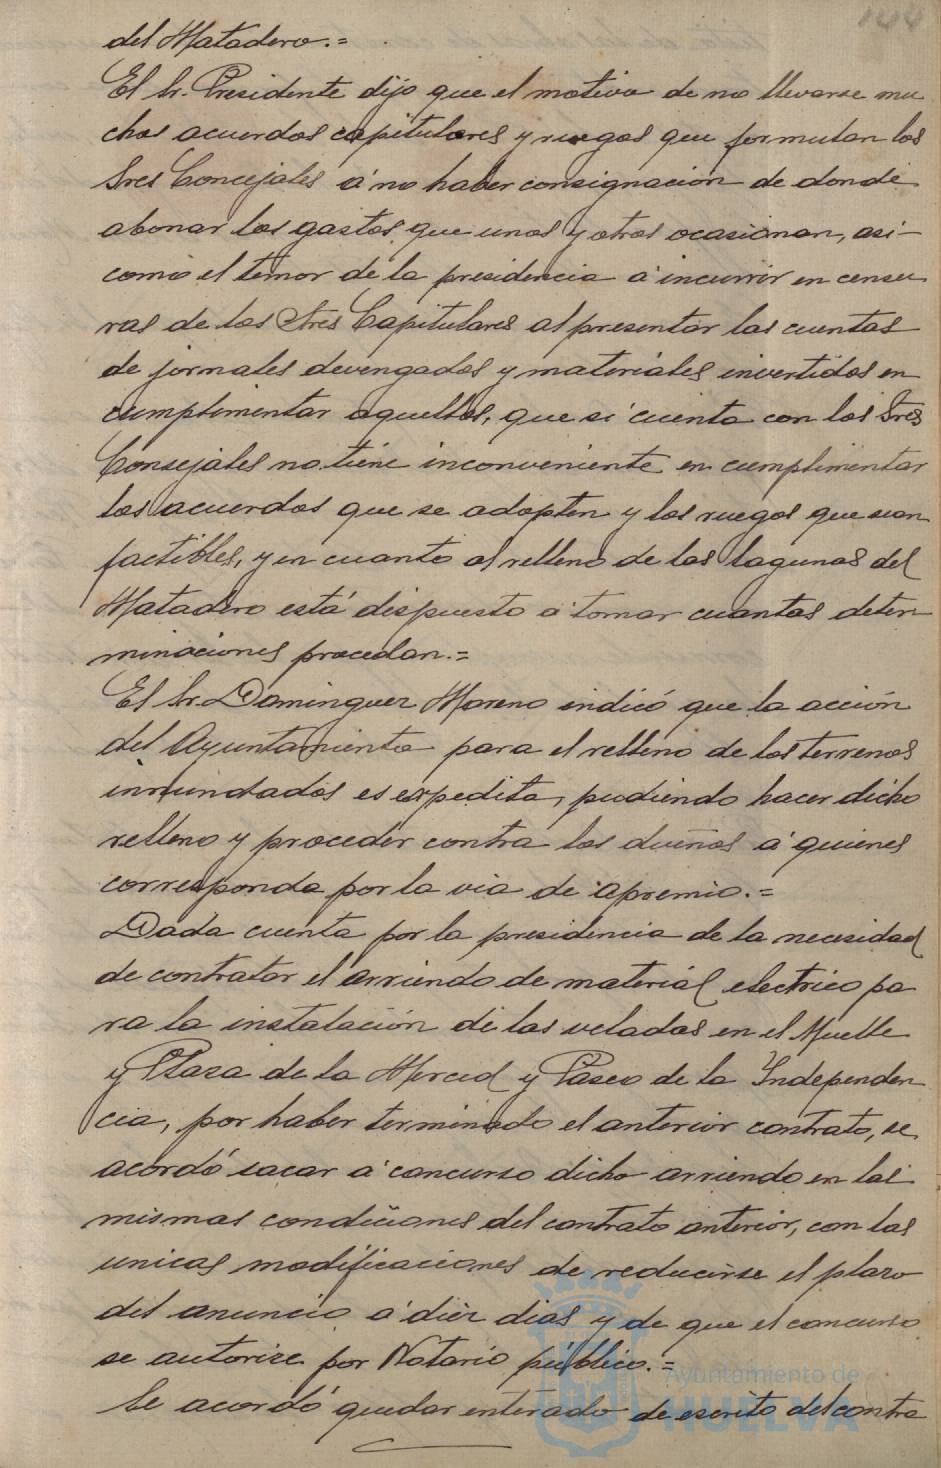 144
del Matadero.=
El Sr. Presidente dijo que el motivo de no llevarse mu
chos acuerdos capitulares y ruegos que formulan los
Sres Concejales á no haber consignación de donde
abonar los gastos que unos y otros ocasionan, asi-
como el temor de la presidencia á incurrir en censu
ras de los Sres Capitulares al presentar las cuentas
de jornales devengados y materiales invertidos en
cumplimentar aquellos, que si cuenta con los Sres
Consejales no tiene inconveniente en cumplimentar
los acuerdos que se adopten y los ruegos que sean
factibles, y en cuanto al relleno de las lagunas del
Matadero está dispuesto á tomar cuantas deter
minaciones procedan.=
El Sr. Dominguez Moreno indicó que la acción
del Ayuntamiento para el relleno de los terrenos
innundados es expedita, pudiendo hacer dicho
relleno y proceder contra los dueños á quienes
corresponda por la via de apremio.=
Dada cuenta por la presidencia de la necesidad
de contratar el arriendo de material electrico pa
ra la instalación de las veladas en el Muelle
y Plaza de la Merced y Paseo de la Independen
cia, por haber terminado el anterior contrato, se
acordó sacar á concurso dicho arriendo en las
mismas condiciones del contrato anterior, con las
unicas modificaciones de reducirse el plazo
del anuncio á diez dias y de que el concurso
se autorice por Notario público.=
Se acordó quedar enterado de escrito del contra
Ayuntamiento de
HUELVA